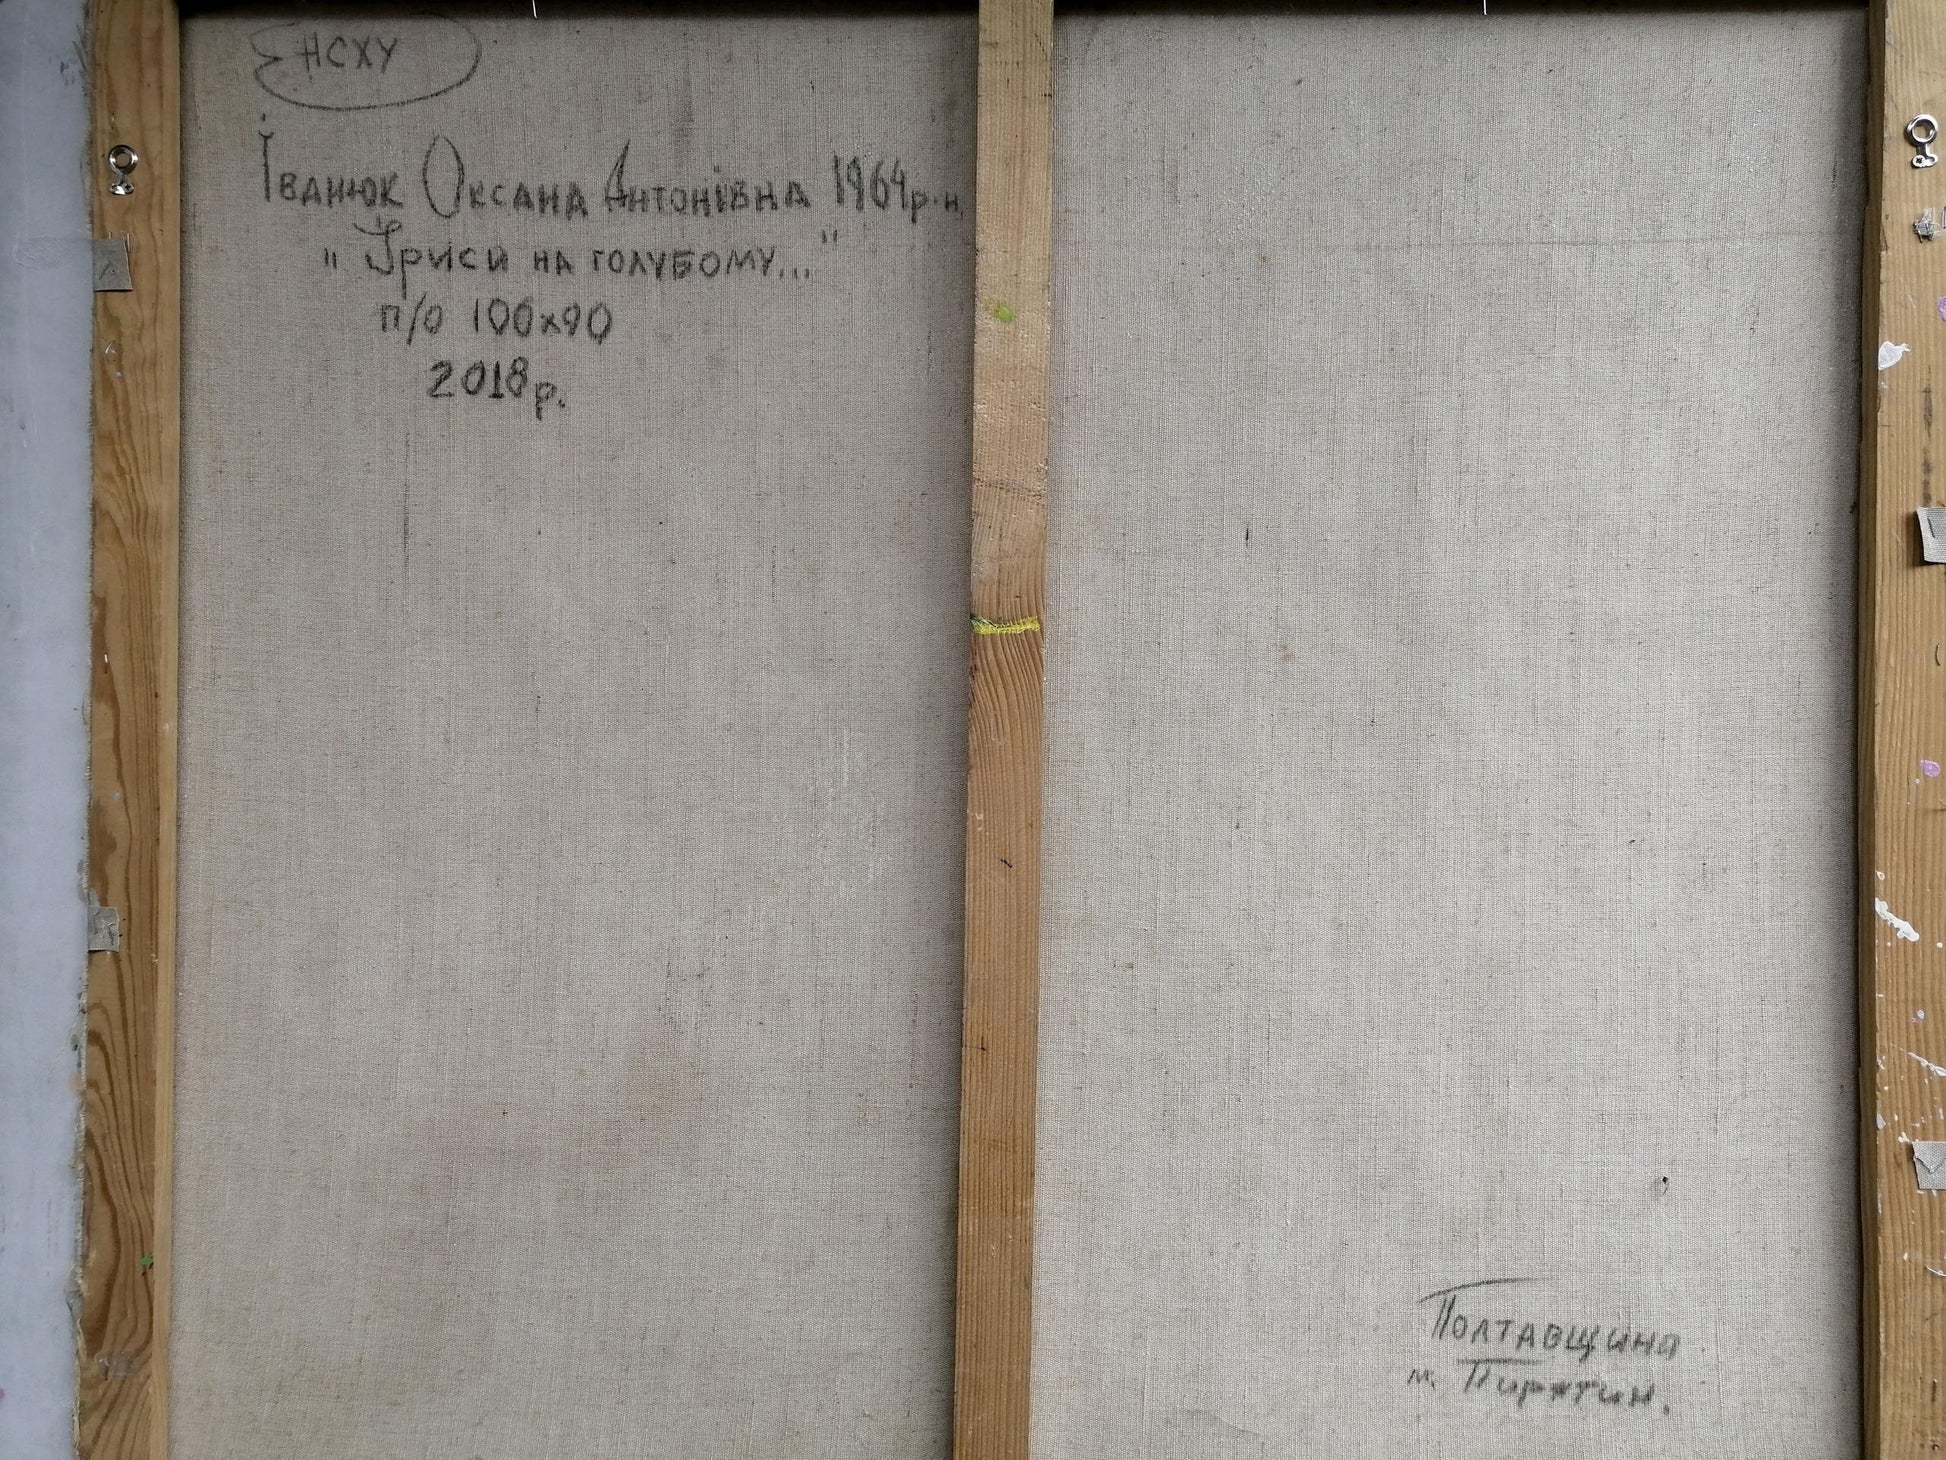 НСХУ
Іванюк Оксана Антонівна 1964 р.н.
„Іриси на голубому..."
п/о 100х90
2018р.
Полтавщина
м. Пирятин.